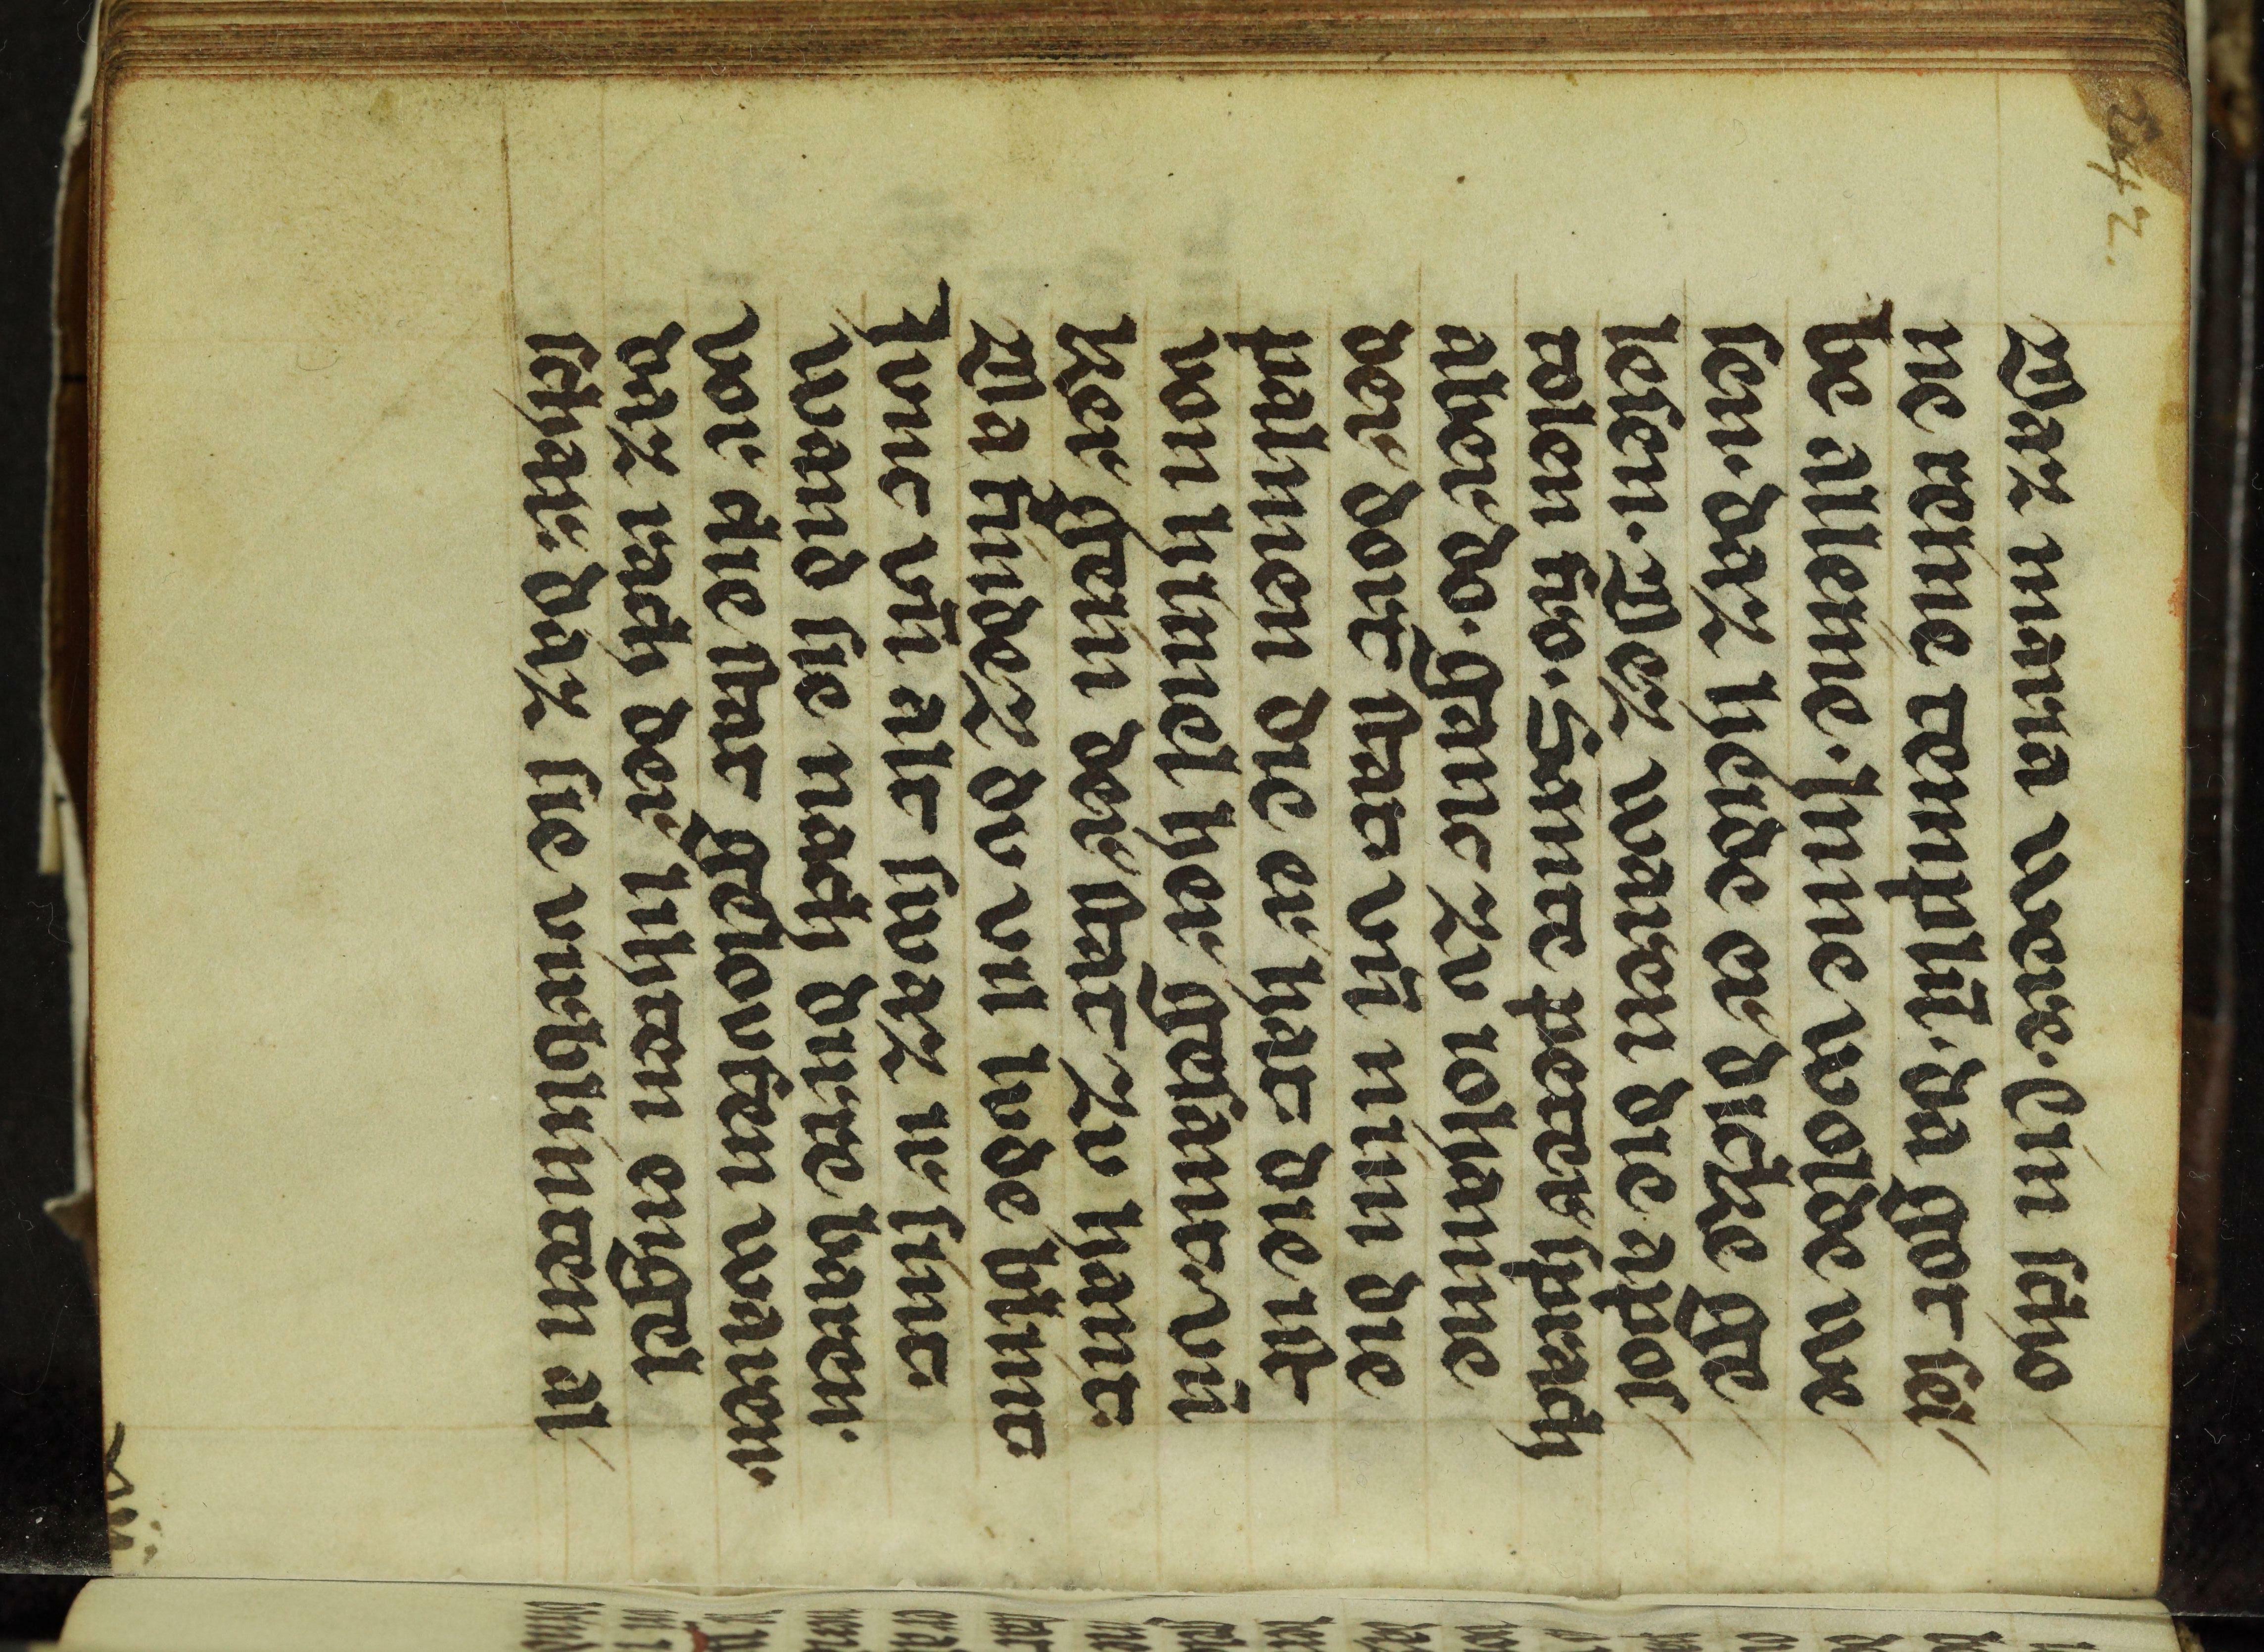 242.
Waz maria were. Ein scho
ne reine templū. da got sel
be alleme. hinne wolde we
sen. daz heide er dicke ge
lesen. Wez waren die apos
tolen fro. Sante peter sprach
aber do. ganc zv iohanne
der dort stat vn̄ nim die
palmen die er hat. die ist
von himel her gesant. vn̄
ker gein der stat zv hant.
Wa findez dv vil lvde blint
Jvnc vn̄ alt swaz ir sint.
wand sie nach dirre baren.
vor die stat gelovfen waren.
daz nach der lihten engel
schar. daz sie virblinten al